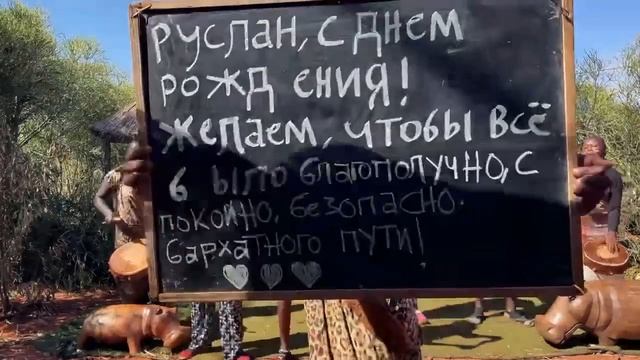 Руслан, с днем
рожд ения!
желаем, чтобы всё
б ыло благополучно, с
покойно, безопасно.
бархатного пути!